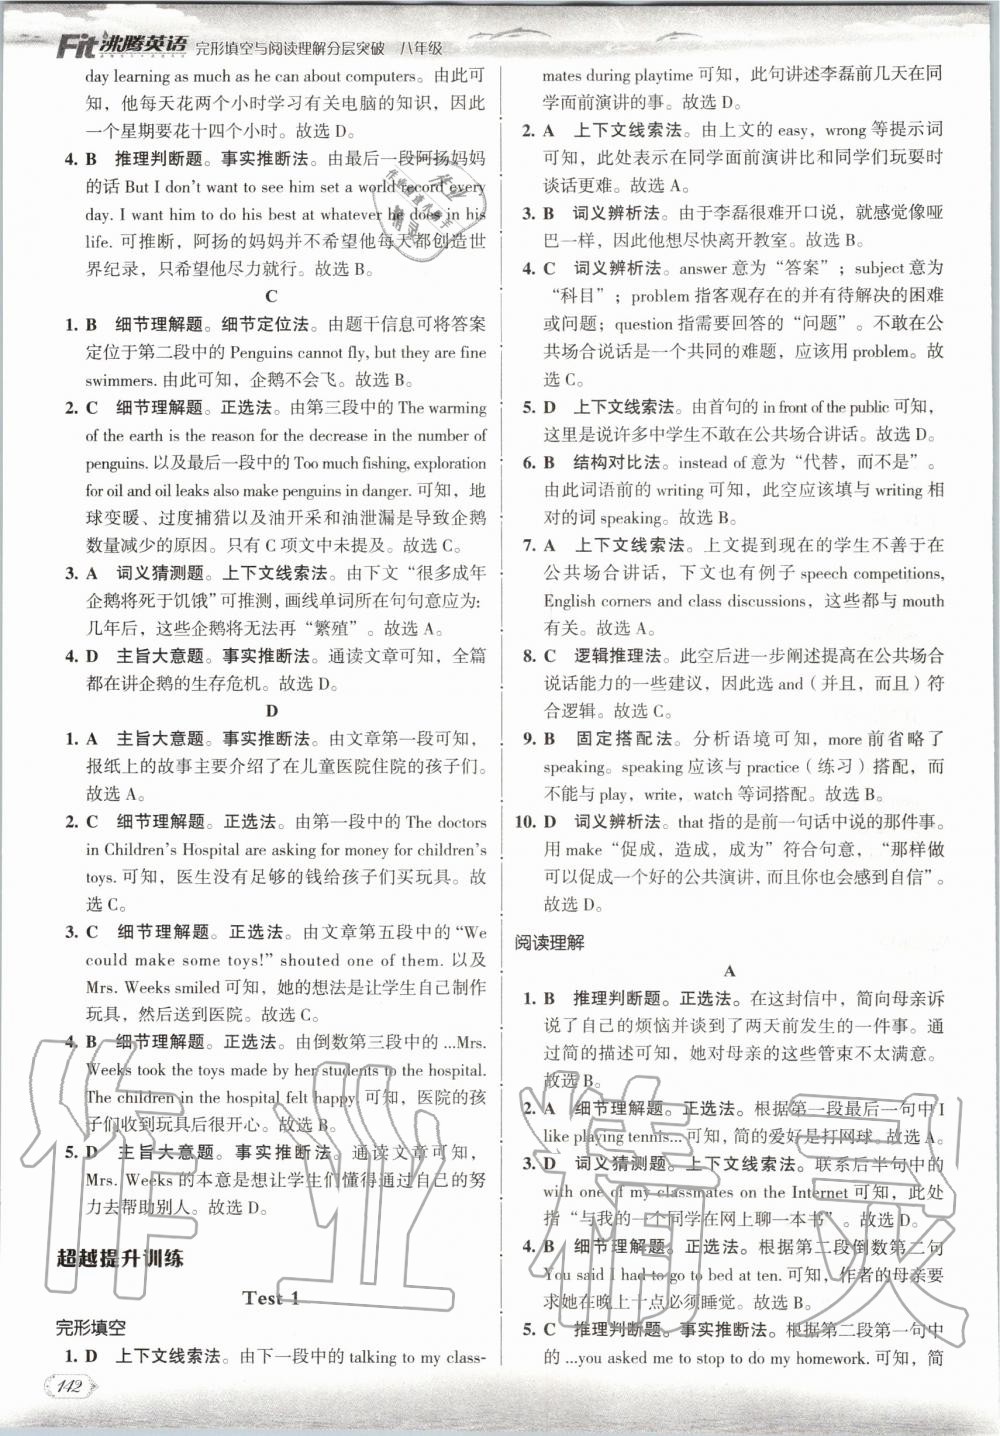 Fit沸腾英语 完形填空与阅读理解分层突破 八年级
day learning as much as he can about computers。由此可
知，他每天花两个小时学习有关电脑的知识，因此
一个星期要花十四个小时。故选 D。
4. B 推理判断题。事实推断法。由最后一段阿扬妈妈
的话 But I don't want to see him set a world record every
day. I want him to do his best at whatever he does in his
life. 可推断，阿扬的妈妈并不希望他每天都创造世
界纪录，只希望他尽力就行。故选 B。
C
1. B 细节理解题。细节定位法。由题干信息可将答案
定位于第二段中的 Penguins cannot fly, but they are fine
swimmers. 由此可知，企鹅不会飞。故选 B。
2. C 细节理解题。正选法。由第三段中的 The warming
of the earth is the reason for the decrease in the number of
penguins. 以及最后一段中的 Too much fishing, exploration
for oil and oil leaks also make penguins in danger. 可知，地
球变暖、过度捕猎以及油开采和油泄漏是导致企鹅
数量减少的原因。只有 C 项文中未提及。故选 C。
3. A 词义猜测题。上下文线索法。由下文“很多成年
企鹅将死于饥饿”可推测，画线单词所在句句意应为：
几年后，这些企鹅将无法再“繁殖”。故选 A。
4. D 主旨大意题。事实推断法。通读文章可知，全篇
都在讲企鹅的生存危机。故选 D。
D
1. A 主旨大意题。事实推断法。由文章第一段可知，
报纸上的故事主要介绍了在儿童医院住院的孩子们。
故选 A。
2. C 细节理解题。正选法。由第一段中的 The doctors
in Children's Hospital are asking for money for children's
toys. 可知，医生没有足够的钱给孩子们买玩具。故
选 C。
3. C 细节理解题。正选法。由文章第五段中的 “We
could make some toys!” shouted one of them. 以及
Mrs. Weeks smiled 可知，她的想法是让学生自己制作
玩具，然后送到医院。故选 C。
4. B 细节理解题。正选法。由倒数第三段中的 ...Mrs.
Weeks took the toys made by her students to the hospital.
The children in the hospital felt happy. 可知，医院的孩
子们收到玩具后很开心。故选 B。
5. D 主旨大意题。事实推断法。通读文章可知，
Mrs. Weeks 的本意是想让学生们懂得通过自己的努
力去帮助别人。故选 D。
超越提升训练
Test 1
完形填空
1. D 上下文线索法。由下一段中的 talking to my class-
142
mates during playtime 可知，此句讲述李磊前几天在同
学面前演讲的事。故选 D。
2. A 上下文线索法。由上文的 easy，wrong 等提示词
可知，此处表示在同学面前演讲比和同学们玩耍时
谈话更难。故选 A。
3. B 词义辨析法。由于李磊很难开口说，就感觉像哑
巴一样，因此他想尽快离开教室。故选 B。
4. C 词义辨析法。answer 意为“答案”；subject 意为
“科目”；problem 指客观存在的并有待解决的困难
或问题；question 指需要回答的“问题”。不敢在公
共场合说话是一个共同的难题，应该用 problem。故
选 C。
5. D 上下文线索法。由首句的 in front of the public 可知，
这里是说许多中学生不敢在公共场合讲话。故选 D。
6. B 结构对比法。instead of 意为“代替，而不是”。
由此词语前的 writing 可知，此空应该填与 writing 相
对的词 speaking。故选 B。
7. A 上下文线索法。上文提到现在的学生不善于在
公共场合讲话，下文也有例子 speech competitions,
English corners and class discussions，这些都与 mouth
有关。故选 A。
8. C 逻辑推理法。此空后进一步阐述提高在公共场合
说话能力的一些建议，因此选 and（并且，而且）符
合逻辑。故选 C。
9. B 固定搭配法。分析语境可知，more 前省略了
speaking。speaking 应该与 practice（练习）搭配，而
不能与 play，write，watch 等词搭配。故选 B。
10. D 词义辨析法。that 指的是前一句话中说的那件事。
用 make“促成，造成，成为”符合句意，“那样做
可以促成一个好的公共演讲，而且你也会感到自信”。
故选 D。
阅读理解
A
1. B 推理判断题。正选法。在这封信中，简向母亲诉
说了自己的烦恼并谈到了两天前发生的一件事。通
过简的描述可知，她对母亲的这些管束不太满意。
故选 B。
2. A 细节理解题。正选法。根据第一段最后一句中 I
like playing tennis... 可知，简的爱好是打网球。故选 A。
3. D 词义猜测题。上下文线索法。联系后半句中的
with one of my classmates on the Internet 可知，此处
指“与我的一个同学在网上聊一本书”。故选 D。
4. B 细节理解题。正选法。根据第二段倒数第二句
You said I had to go to bed at ten. 可知，作者的母亲要
求她在晚上十点必须睡觉。故选 B。
5. C 推理判断题。事实推断法。根据第二段第一句中
的 ...you asked me to stop to do my homework. 可知，简
作业精灵